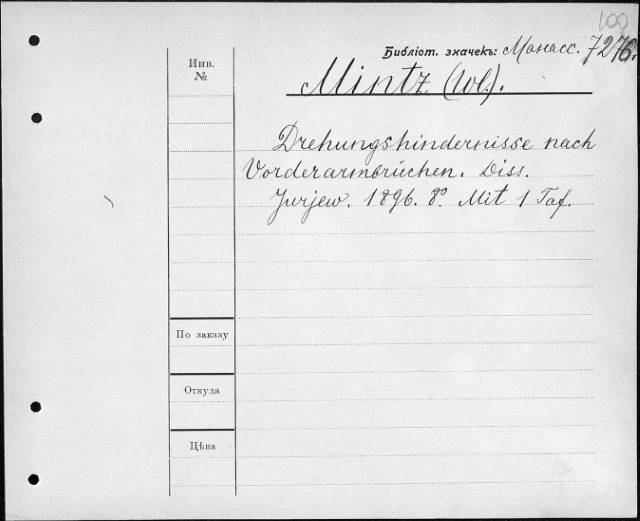 100
Библіот. значекъ: Монасс. 7276.
Инв.
№
Mintz (Wl.).
Drehungshindernisse nach
Vorderarmbrüchen. Diss.
Jurjew. 1896. 8º. Mit 1 Taf.
По заказу
Откуда
Цѣна